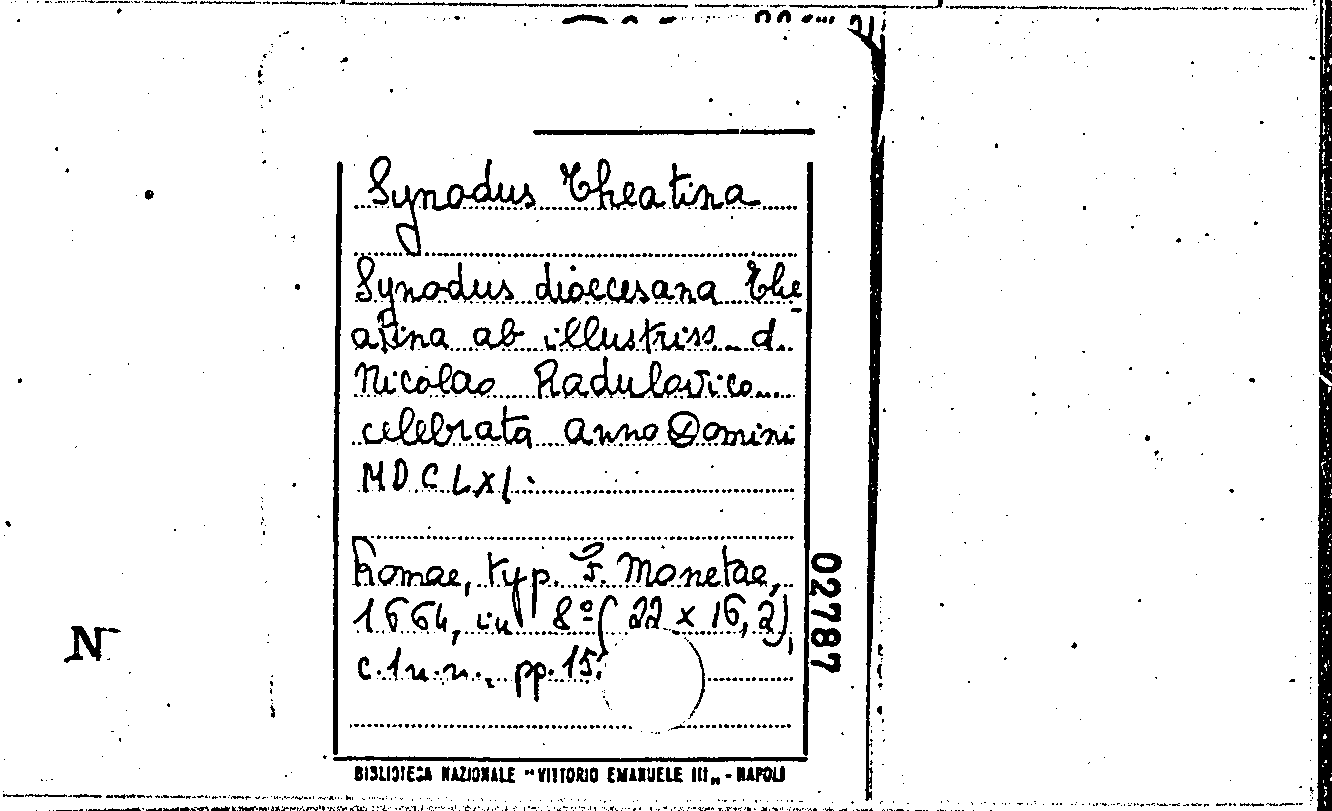 Synodus Theatina
Synodus dioecesana The
atina ab illustriss. d.
Nicolao Radulovico
celebrata anno Domini
MDCLXI.
Romae, typ. F. Monetae,
1664, in 8º (22 x 16,2),
c. 1 n.n., pp. 15
02787
N
BIBLIOTECA NAZIONALE "VITTORIO EMANUELE III" - NAPOLI